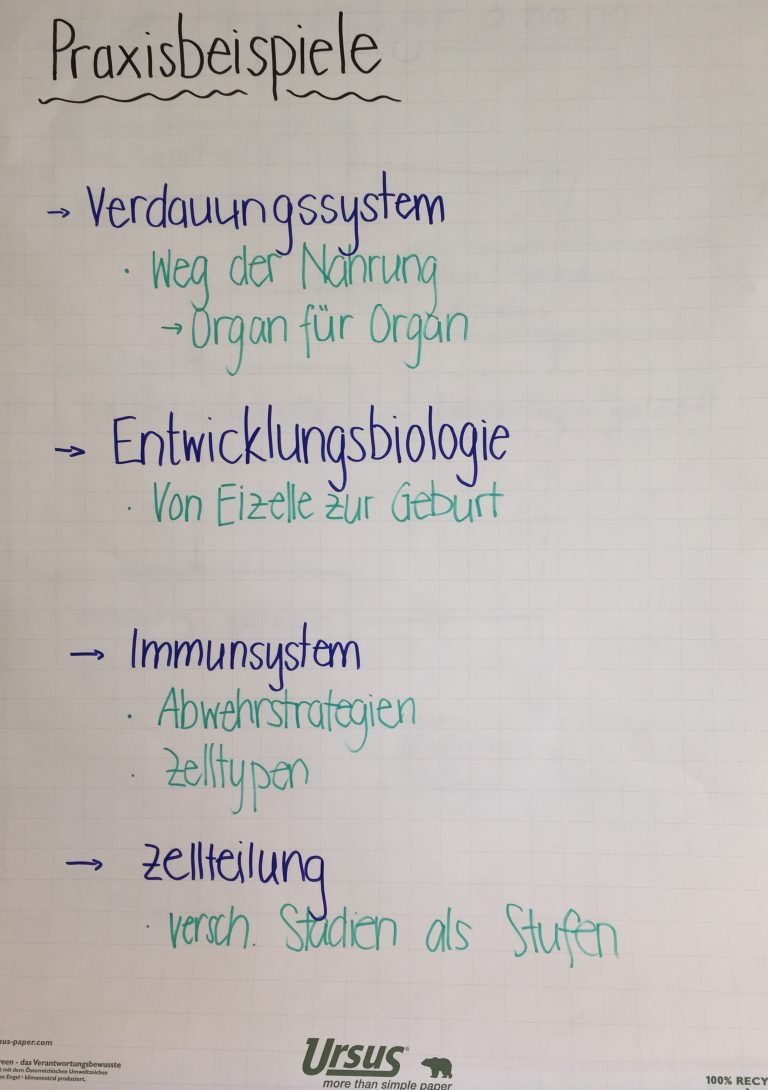 Praxisbeispiele
→ Verdauungssystem
· Weg der Nahrung
→ Organ für Organ
→ Entwicklungsbiologie
· Von Eizelle zur Geburt
→ Immunsystem
· Abwehrstrategien
· Zelltypen
→ Zellteilung
· versch. Stadien als Stufen
sus-paper.com
reen - das Verantwortungsbewusste
mit dem Österreichischen Umweltzeichen
en Engel • klimaneutral produziert.
Ursus®
more than simple paper
100% RECY